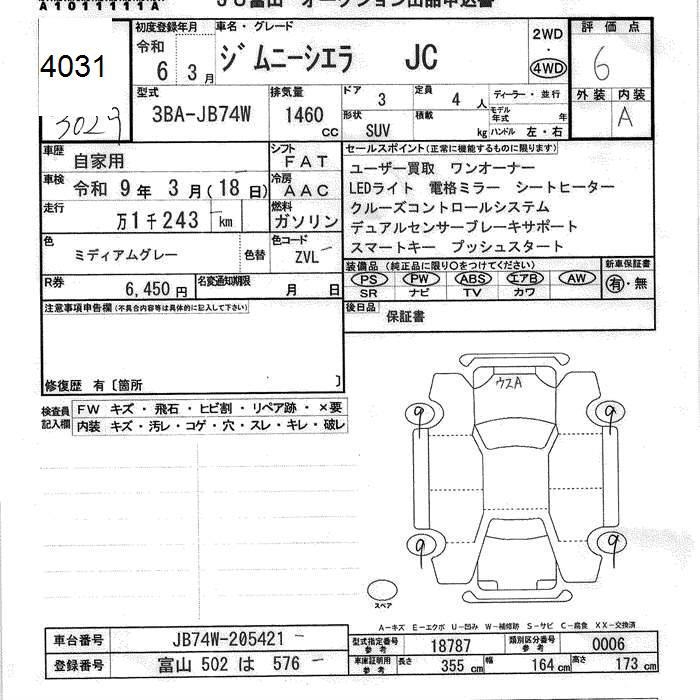 A1011111A JU富山 オークション出品申込書
4031
3023
初度登録年月 車名・グレード
令和 6 3 月 ジムニーシエラ JC
2WD
4WD
評価点
6
外装 内装
A
型式 排気量 ドア 定員 ディーラー・並行
3BA-JB74W 1460 cc 3 4 人 モデル年式 年
形状 積載
SUV kg ハンドル 左・右
車歴 シフト セールスポイント(正常に機能するものに限ります)
自家用 F A T
車検 冷房
令和 9 年 3 月 ( 18 日) A A C
走行 燃料
万 1 千 243 km ガソリン
色 色コード
ミディアムグレー 色替 ZVL
R券 名変通知期限
6,450 円 月 日
ユーザー買取 ワンオーナー
LEDライト 電格ミラー シートヒーター
クルーズコントロールシステム
デュアルセンサーブレーキサポート
スマートキー プッシュスタート
装備品 (純正品に限り〇をつけてください) 新車保証書
PS PW ABS エアB AW
SR ナビ TV カワ
有・無
後日品
保証書
注意事項申告欄 (不具合内容等は具体的に記入して下さい)
修復歴 有〔箇所 〕
検査員記入欄
FW キズ・飛石・ヒビ割・リペア跡・×要
内装 キズ・汚レ・コゲ・穴・スレ・キレ・破レ
ウスA
9 9
9 9
スペア
A-キズ E-エクボ U-凹み W-補修跡 S-サビ C-腐食 XX-交換済
車台番号 JB74W-205421
登録番号 富山 502 は 576
型式指定番号参考 18787 類別区分番号参考 0006
車庫証明用参考 長さ 355 cm 幅 164 cm 高さ 173 cm